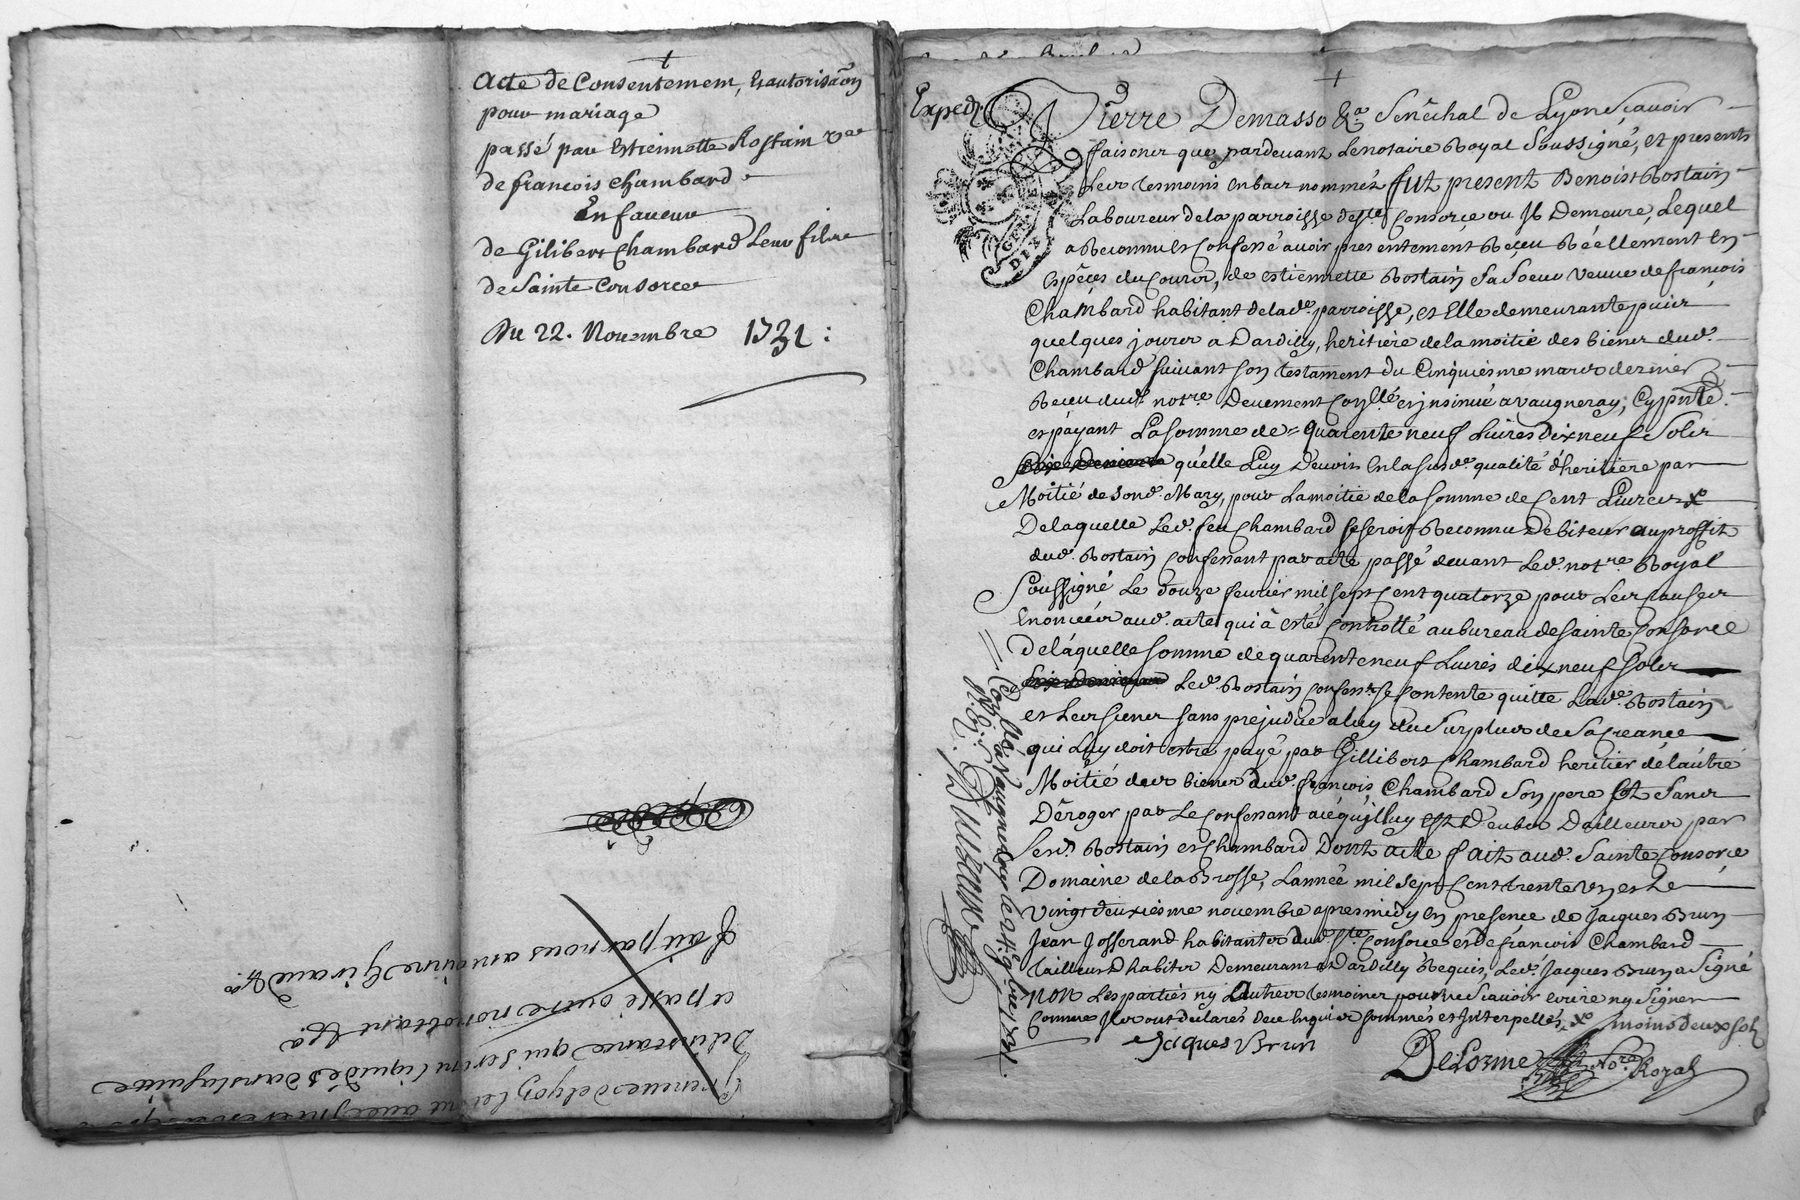 Acte de Consentement, Et autorisaon
pour mariage
passé par Estiennette Rostain vve
de francois Chambard
En faveur
de Gilibert Chambard Leur fils
de Sainte Consorce
Du 22. Novembre 1731 :
fait par nous antoinne Giraud
et passé outre nonobtant &a
Delinstance qui seront liquidés dans la suitte
Expedi.
Pierre Demasso &a Senêchal de Lyon Scavoir
faisons que pardevant Lenotaire Royal Soussigné, et presents
Les tesmoins enbas nommés fut present Benoist Rostain
Laboureur de la parroisse de ste Consorce ou Il Demeure, Lequel
a Reconnu et Confessé avoir presentement Reçeu Réellement En
Espêçes du Cours, de estiennette Rostain Sa Soeur veuve de francois
Chambard habitant de lad. parroisse, et Elle demeurante puis
quelques jours a Dardilly, heritiere de la moitié des biens dud.
Chambard suivant son testament du Cinquiesme mars dernier
Receu dud. notre. Deuement Conllé et jnsinué a vaugneray,
et payant La somme de quarente neuf Livres dix neuf Sols
quelle Luy Devoit En la susd. qualité d'heritiere par
Moitié de sond. Mary, pour La moitié de la somme de Cent Livres xo
De laquelle Led. feu Chambard se seroit Reconnu Debiteur au proffit
dud. Rostain Confessant par acte passé devant Led. notre. Royal
Soussigné Le douze fevrier mil sept Cent quatorze pour Les Causes
Enoncées aud. acte qui à esté Controllé au bureau de Sainte Consorce
de laquelle somme de quarente neuf Livres dix neuf sols
Led. Rostain Confesst. se Contente quitte Lad. Rostain
et Les siens sans prejudice a luy du Surplus de sa Creance
qui Luy doit estre payé par Gillibert Chambard heritier de l'autre
Moitié des biens dud. françois Chambard Son pere Et Sans
Déroger par Le Confessant a ce qu'il luy est Deub D'ailleurs par
Lesd. Rostain et Chambard Dont acte fait aud. Sainte Consorce
Domaine de la Brosse, L'année mil sept Cent trente un et Le
vingt deuxiesme novembre apres midy En presence de Jacques Brun
Jean Josserand habitants dud. ste. Consorce et de francois Chambard
tailleur D'habits Demeurant a Dardilly Requis, Led. Jacques Brun a Signé
non Les parties ny L'autres tesmoins pour ne Scavoir ecrire ny Signer
Comme Ils ont declarés de ce Enquis sommés et Interpellés, xo moins deux sols
Jacques Brun
DeLorme Nore Royal